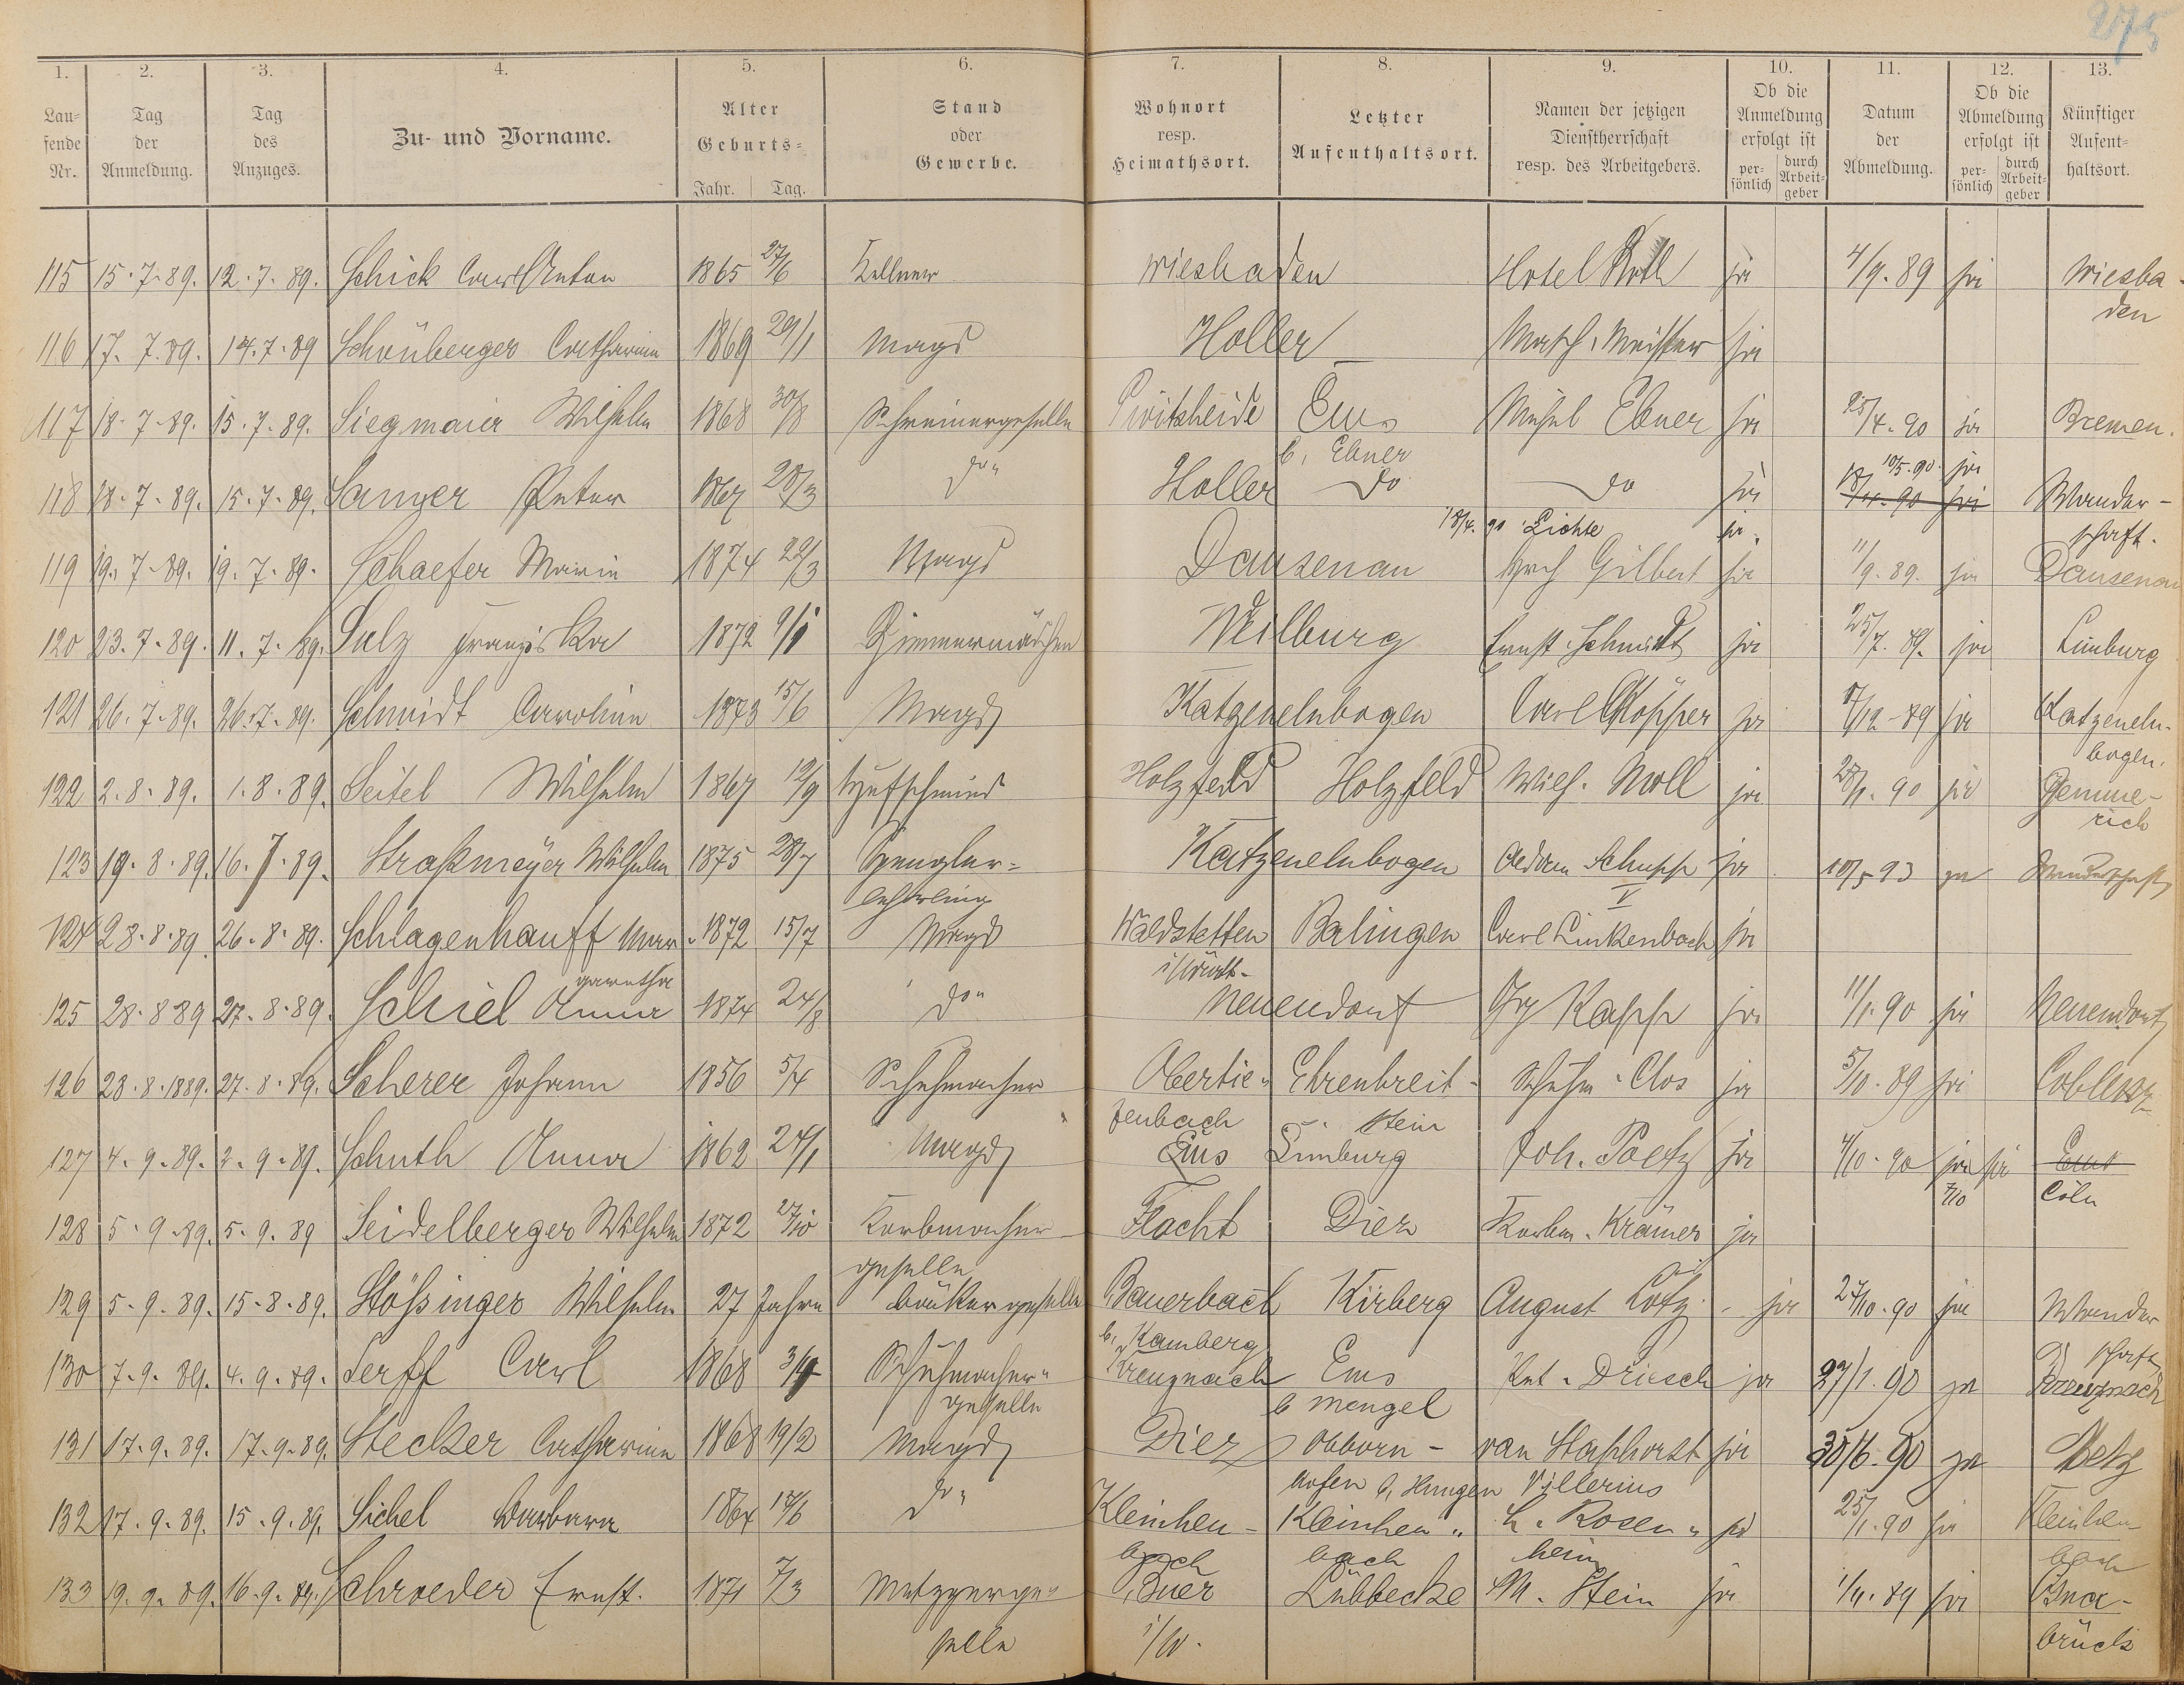 275
1. 2. 3. 4. 5. 6. 7. 8. 9. 10. 11. 12. 13.
Lau-
fende
Nr.
Tag
der
Anmeldung.
Tag
des
Anzuges.
Zu- und Vorname.
Alter
Geburts-
Jahr. Tag.
Stand
oder
Gewerbe.
Wohnort
resp.
Heimathsort.
Letzter
Aufenthaltsort.
Namen der jetzigen
Dienstherrschaft
resp. des Arbeitgebers.
Ob die
Anmeldung
erfolgt ist
per-
sönlich
durch
Arbeit-
geber
Datum
der
Abmeldung.
Ob die
Abmeldung
erfolgt ist
per-
sönlich
durch
Arbeit-
geber
Künftiger
Aufent-
haltsort.
115 15.7.89. 12.7.89. Schick Anton 1865 27/6 Kellner Wiesbaden Hotel Roth ja 4/9.89 ja Wiesba-
den
116 17.7.89. 14.7.89 Schönberger Catharina 1869 29/1 Magd Holler Math. Meister ja
117 18.7.89. 15.7.89. Siegmaier Wilhelm 1868 30/8 Schreinergeselle Pivitsheide Ems Ebner ja 25/4.90 ja Bremen.
b. Ebner
118 18.7.89. 15.7.89. Sanger Peter 1867 28/3 do Holler do do ja 10/5.90. ja Wander-
schaft.
18/4.90 Lichte ja.
119 19.7.89. 19.7.89. Schaefer Maria 1874 22/3 Magd Dausenau Gilbert ja 11/9.89. ja Dausenau
120 23.7.89. 11.7.89. Sulz Franziska 1872 9/1 Zimmermädchen Weilburg Ernst Schmidt ja 25/7.89. ja Limburg
121 26.7.89. 26.7.89. Schmidt Carolina 1873 15/6 Magd Katzenelnbogen Carl Röpper ja /12.89 ja Katzeneln-
bogen.
122 2.8.89. 1.8.89. Seitel Wilhelm 1867 12/9 Hufschmied Holzfeld Holzfeld Wilh. Moll ja 28/1.90 ja Gemme-
rich
123 19.8.89. 16.7.89. Straßmeyer Wilhelm 1875 28/7 Spengler-
lehrling
Katzenelnbogen Adam Schupp V ja 10/5 93 ja Wanderschaft
124 28.8.89. 26.8.89. Schlagenhauff Mar-
garetha
1872 15/7 Magd Waldstetten
i/Württ.
Balingen Carl Linkenbach ja
125 28.8.89 27.8.89. Schiel Anna 1874 24/8 do Neuendorf Kapp ja 11/1.90 ja Neuendorf
126 28.8.1889. 27.8.89. Scherer Johann 1856 5/4 Schuhmacher Obertie-
fenbach
Ehrenbreit-
stein
Schuhm. Clos ja 5/10.89 ja Coblenz
127 4.9.89. 2.9.89. Schuth Anna 1862 24/1 Magd Ems Limburg Joh. Poetz ja 4/10.90 ja ja Ems
7/10 Cöln
128 5.9.89. 5.9.89 Seidelberger Wilhelm 1872 27/10 Korbmacher
geselle
Flacht Diez Korbm. Krämer ja
129 5.9.89. 15.8.89. Stößinger Wilhelm 27 Jahre Bäckergeselle Bauerbach
b. Kamberg
Kirberg August Lotz ja 27/10.90 ja Wander
schaft
130 7.9.89. 4.9.89. Serff Carl 1868 3/9 Schuhmacher-
geselle
Kreuznach Ems
b Mengel
Pet. Driesch ja 27/1.90 ja Kreuznach
131 17.9.89. 17.9.89. Stecker Catharina 1868 19/2 Magd Diez Obborn-
hofen b. Hungen
van Staphorst
Villerius
ja 30/6.90 ja Metz
132 17.9.89. 15.9.89. Sichel Barbara 1864 17/6 do Kleinheu-
bach
Kleinheu-
bach
L. Rosen-
heim
ja 25/1.90 ja Kleinheu-
bach
133 19.9.89. 16.9.89. Schroeder Ernst. 1871 7/3 Metzgerge-
selle
Buer
i/W.
Lübbecke M. Stein ja 1/11.89 ja Osna-
brück